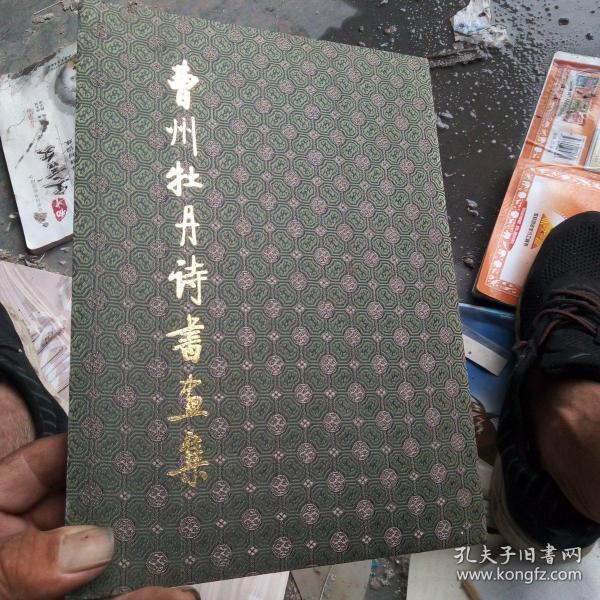 曹州牡丹诗书画集
孔夫子旧书网
www.kongfz.com